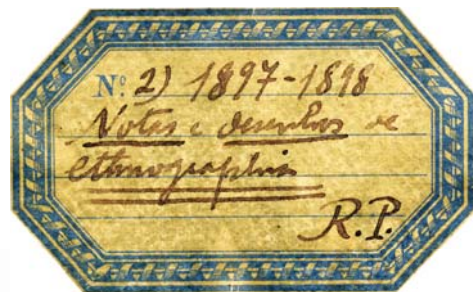 Nº 2) 1897-1898
Notas e desenhos de
ethnographia
R.P.